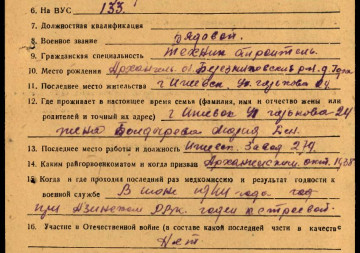 6. На ВУС 133.
7. Должностная квалификация
8. Военное звание рядовой.
9. Гражданская специальность техник строитель.
10. Место рождения Арханг. о. Березниковский р-н. д.
11. Последнее место жительства г Ижевск,
12. Где проживает в настоящее время семья (фамилия, имя и отчество жены или
родителей и точный их адрес) г Ижевск
жена Бондарева Мария
13. Последнее место работы и должность Ижевск. Завод
14. Каким райгорвоенкоматом и когда призван Архангельским окт.
15. Когда и где проходил последний раз медкомиссию и результат годности к
военной службе В июне года
при РВК. годен к строевой.
16. Участие в Отечественной войне (в составе какой последней части и в качестве
Нет